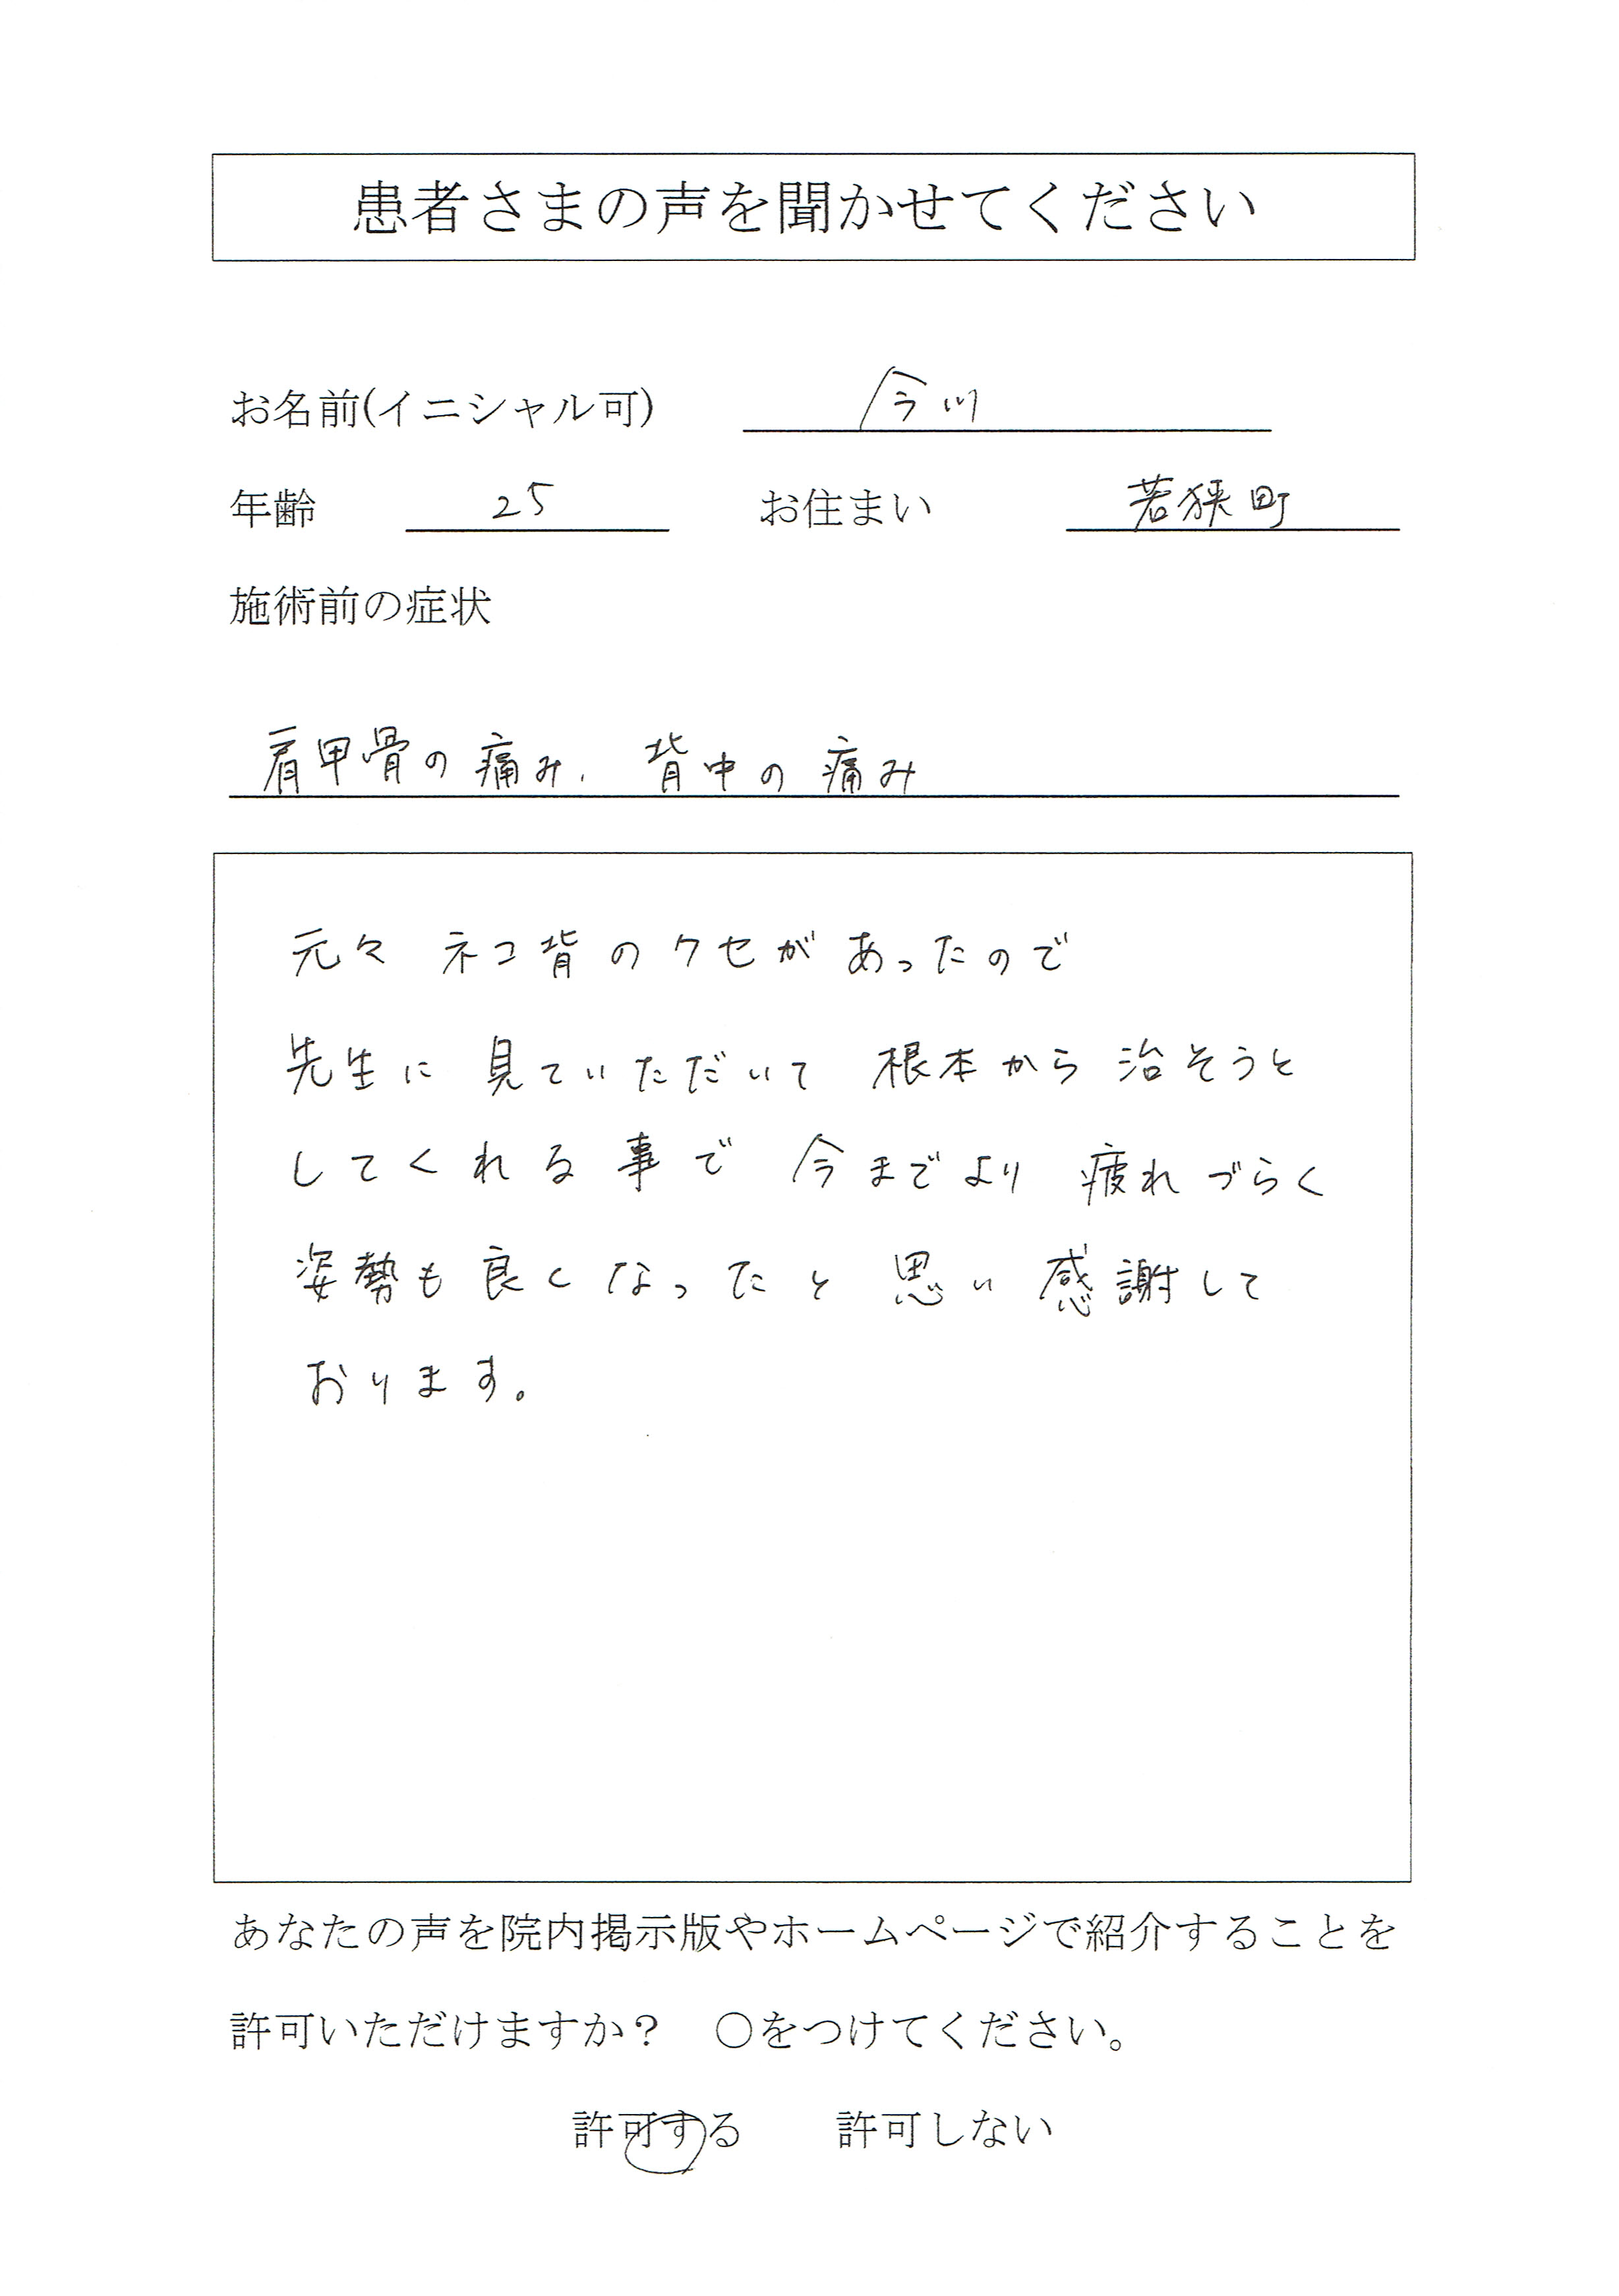 患者さまの声を聞かせてください
お名前(イニシャル可) 今川
年齢 25 お住まい 若狭町
施術前の症状
肩甲骨の痛み、背中の痛み
元々 ネコ背のクセがあったので
先生に 見ていただいて 根本から 治そうと
してくれる事で 今までより 疲れづらく
姿勢も良くなったと思い感謝して
おります。
あなたの声を院内掲示版やホームページで紹介することを
許可いただけますか？ ○をつけてください。
許可する 許可しない